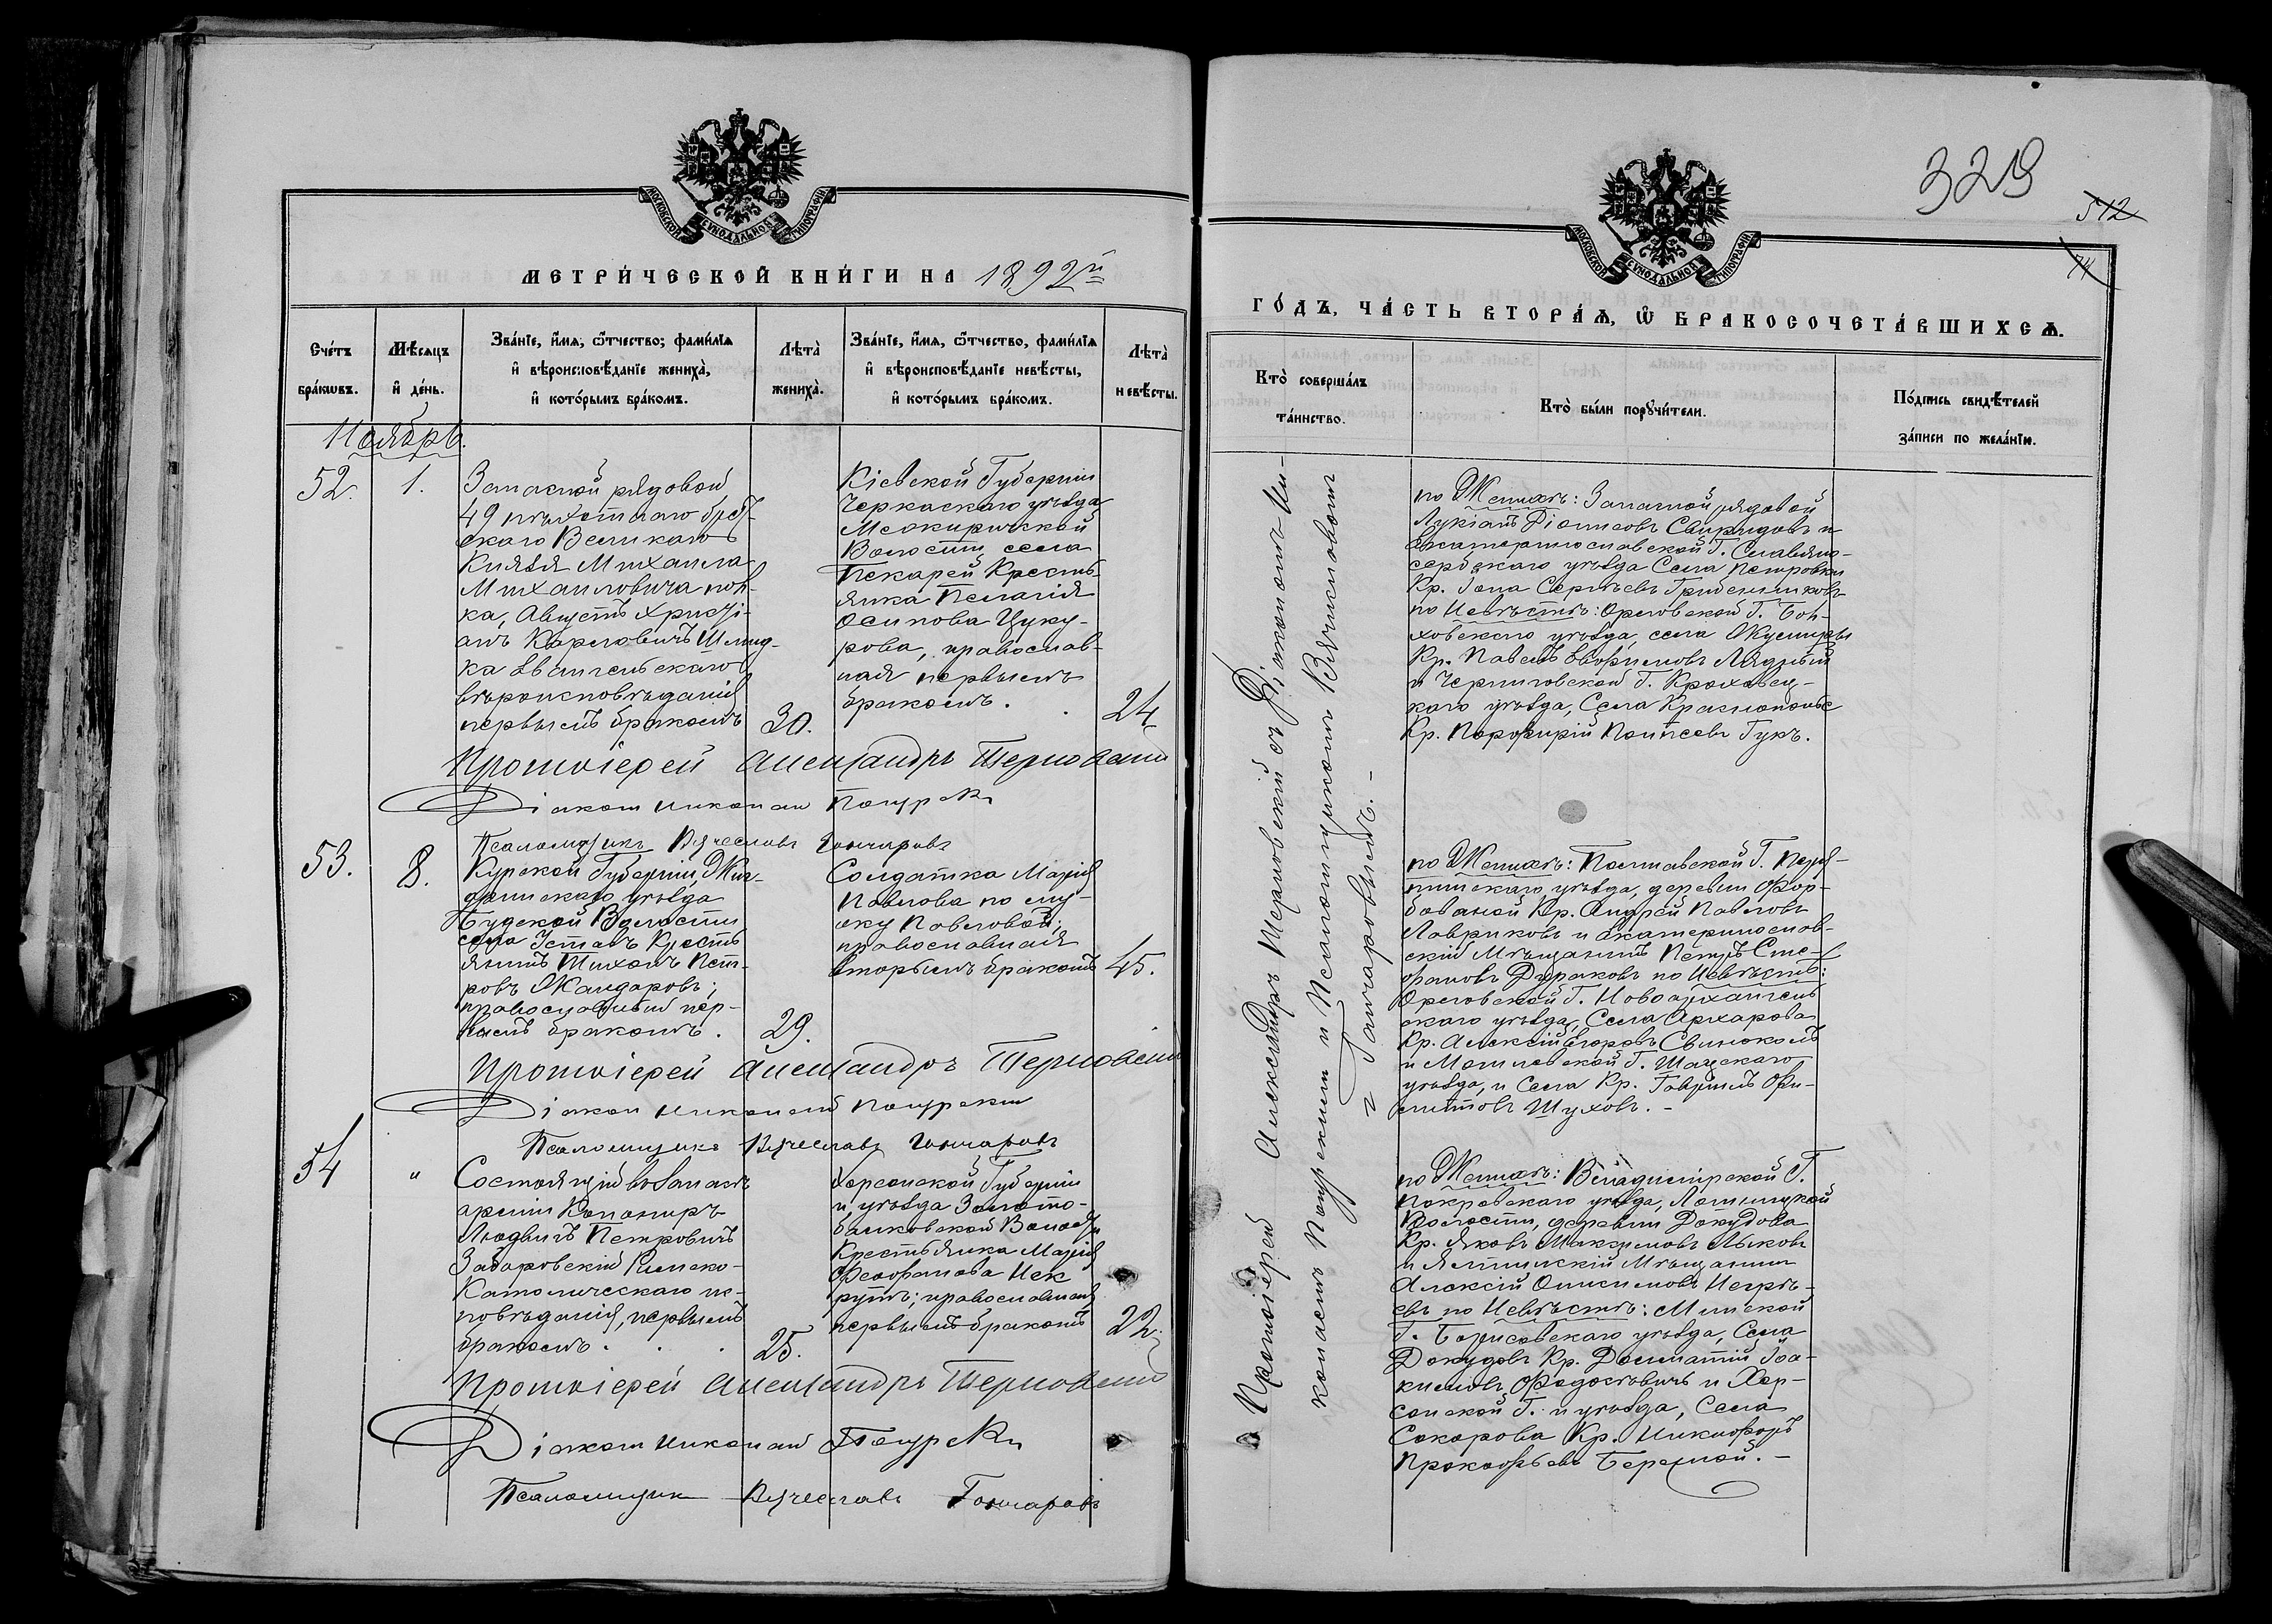 МОСКОВСКОЙ СѴНОДАЛЬНОЙ ТИПОГРАФІИ
МЕТРИ́ЧЕСКОЙ КНИ́ГИ НА 1892й
Сче́тъ бра́кѡвъ.
Мѣ́сяцъ и҆ де́нь.
Зва́нїе, и҆́мѧ, ѻ҆́тчество, фами́лїѧ
и҆ вѣроисповѣ́данїе жениха̀,
и҆ кото́рымъ бра́комъ.
Лѣта̀ жениха̀.
Зва́нїе, и҆́мѧ, ѻ҆́тчество, фами́лїѧ
и҆ вѣроисповѣ́данїе невѣ́сты,
и҆ кото́рымъ бра́комъ.
Лѣта̀ невѣ́сты.
Ноябрь.
52. 1.
Запасной рядовой
49 пѣхотнаго Брест-
скаго Великаго
Князя Михаила
Михаиловича пол-
ка, Августъ Христі-
анъ Карловичъ
ка Евангельскаго
вѣроисповѣданія
первымъ бракомъ
30.
Кіевской Губерніи
Черкаскаго уѣзда
Волости села
Пекарей Кресть-
янка Пелагія
Осипова Цуку-
рова, православ-
ная первымъ
бракомъ.
24
Протоіерей Александръ Терновскій
Діаконъ Николай
Псаломщикъ Вячеславъ Гончаровъ
53. 8.
Курской Губерніи,
уѣзда
Волости
села Уставъ Кресть
янинъ Тихонъ Пет-
ровъ Жандаровъ;
православный пер-
вымъ бракомъ.
29.
Солдатка Марія
Павлова по му-
жу Павловой;
православная
вторымъ бракомъ
45.
Протоіерей Александръ Терновскій
Діаконъ Николай
Псаломщикъ Вячеславъ Гончаровъ
54 "
Состоящій въ запасѣ
арміи Канониръ
Людвигъ Петровичъ
Заборовскій Римско-
Католическаго ис-
повѣданія, первымъ
бракомъ.
25.
Херсонской Губерніи
и уѣзда Золото-
балковской Волости
Крестьянка Марія
Феофанова Нек
рутъ; православная
первымъ бракомъ
22.
Протоіерей Александръ Терновскій
Діаконъ Николай
Псаломщикъ Вячеславъ Гончаровъ
329
512
74
МОСКОВСКОЙ СѴНОДАЛЬНОЙ ТИПОГРАФІИ
ГО́ДЪ, ЧА́СТЬ ВТОРА́Ѧ, Ѽ БРАКОСОЧЕТА́ВШИХСѦ.
Кто̀ соверша́лъ та́инство.
Кто̀ бы́ли порꙋчи́тели.
По́дпись свидѣ́телей за́писи по жела́нїю.
Протоіерей Александръ Терновскій съ Діакономъ Ни-
колаемъ и Псаломщикомъ Вячеславомъ
Гончаровымъ.-
по Женихѣ: Запасной рядовой
Лукіанъ Свиридовъ и
Екатеринославской Г. Славяно-
сербскаго уѣзда Села Петровки
Кр. Іона Сергѣевъ
по Невѣстѣ: Орловской Г. Бол-
ховскаго уѣзда, села
Кр. Павелъ
и Черниговской Г. Кролевец-
каго уѣзда, Села Краснополье
Кр. Порфирій Гукъ.
по Женихѣ: Полтавской Г. Пиря-
тинскаго уѣзда, деревни
Кр. Андрей Павловъ
Лавриковъ и Екатеринослав-
скій Мѣщанинъ Петръ Сте-
фановъ Дураковъ по Невѣстѣ:
Орловской Г.
скаго уѣзда, Села Архарова
Кр. Алексій Егоровъ
и Могилевской Г.
уѣзда, и Села Кр. Гавріилъ Фи-
Шуховъ.-
по Женихѣ: Владимірской Г.
Покровскаго уѣзда,
Волости, деревни Докудова
Кр. Яковъ Максимовъ Лыковъ
и Ялтинскій Мѣщанинъ
Алексій Онисимовъ
по Невѣстѣ: Минской
Г. Борисовскаго уѣзда, Села
Докудовъ Кр. Іоа-
кимовъ и Хер-
сонской Г. и уѣзда, Села
Кр. Никифоръ
Прокофьевъ Бережной.-